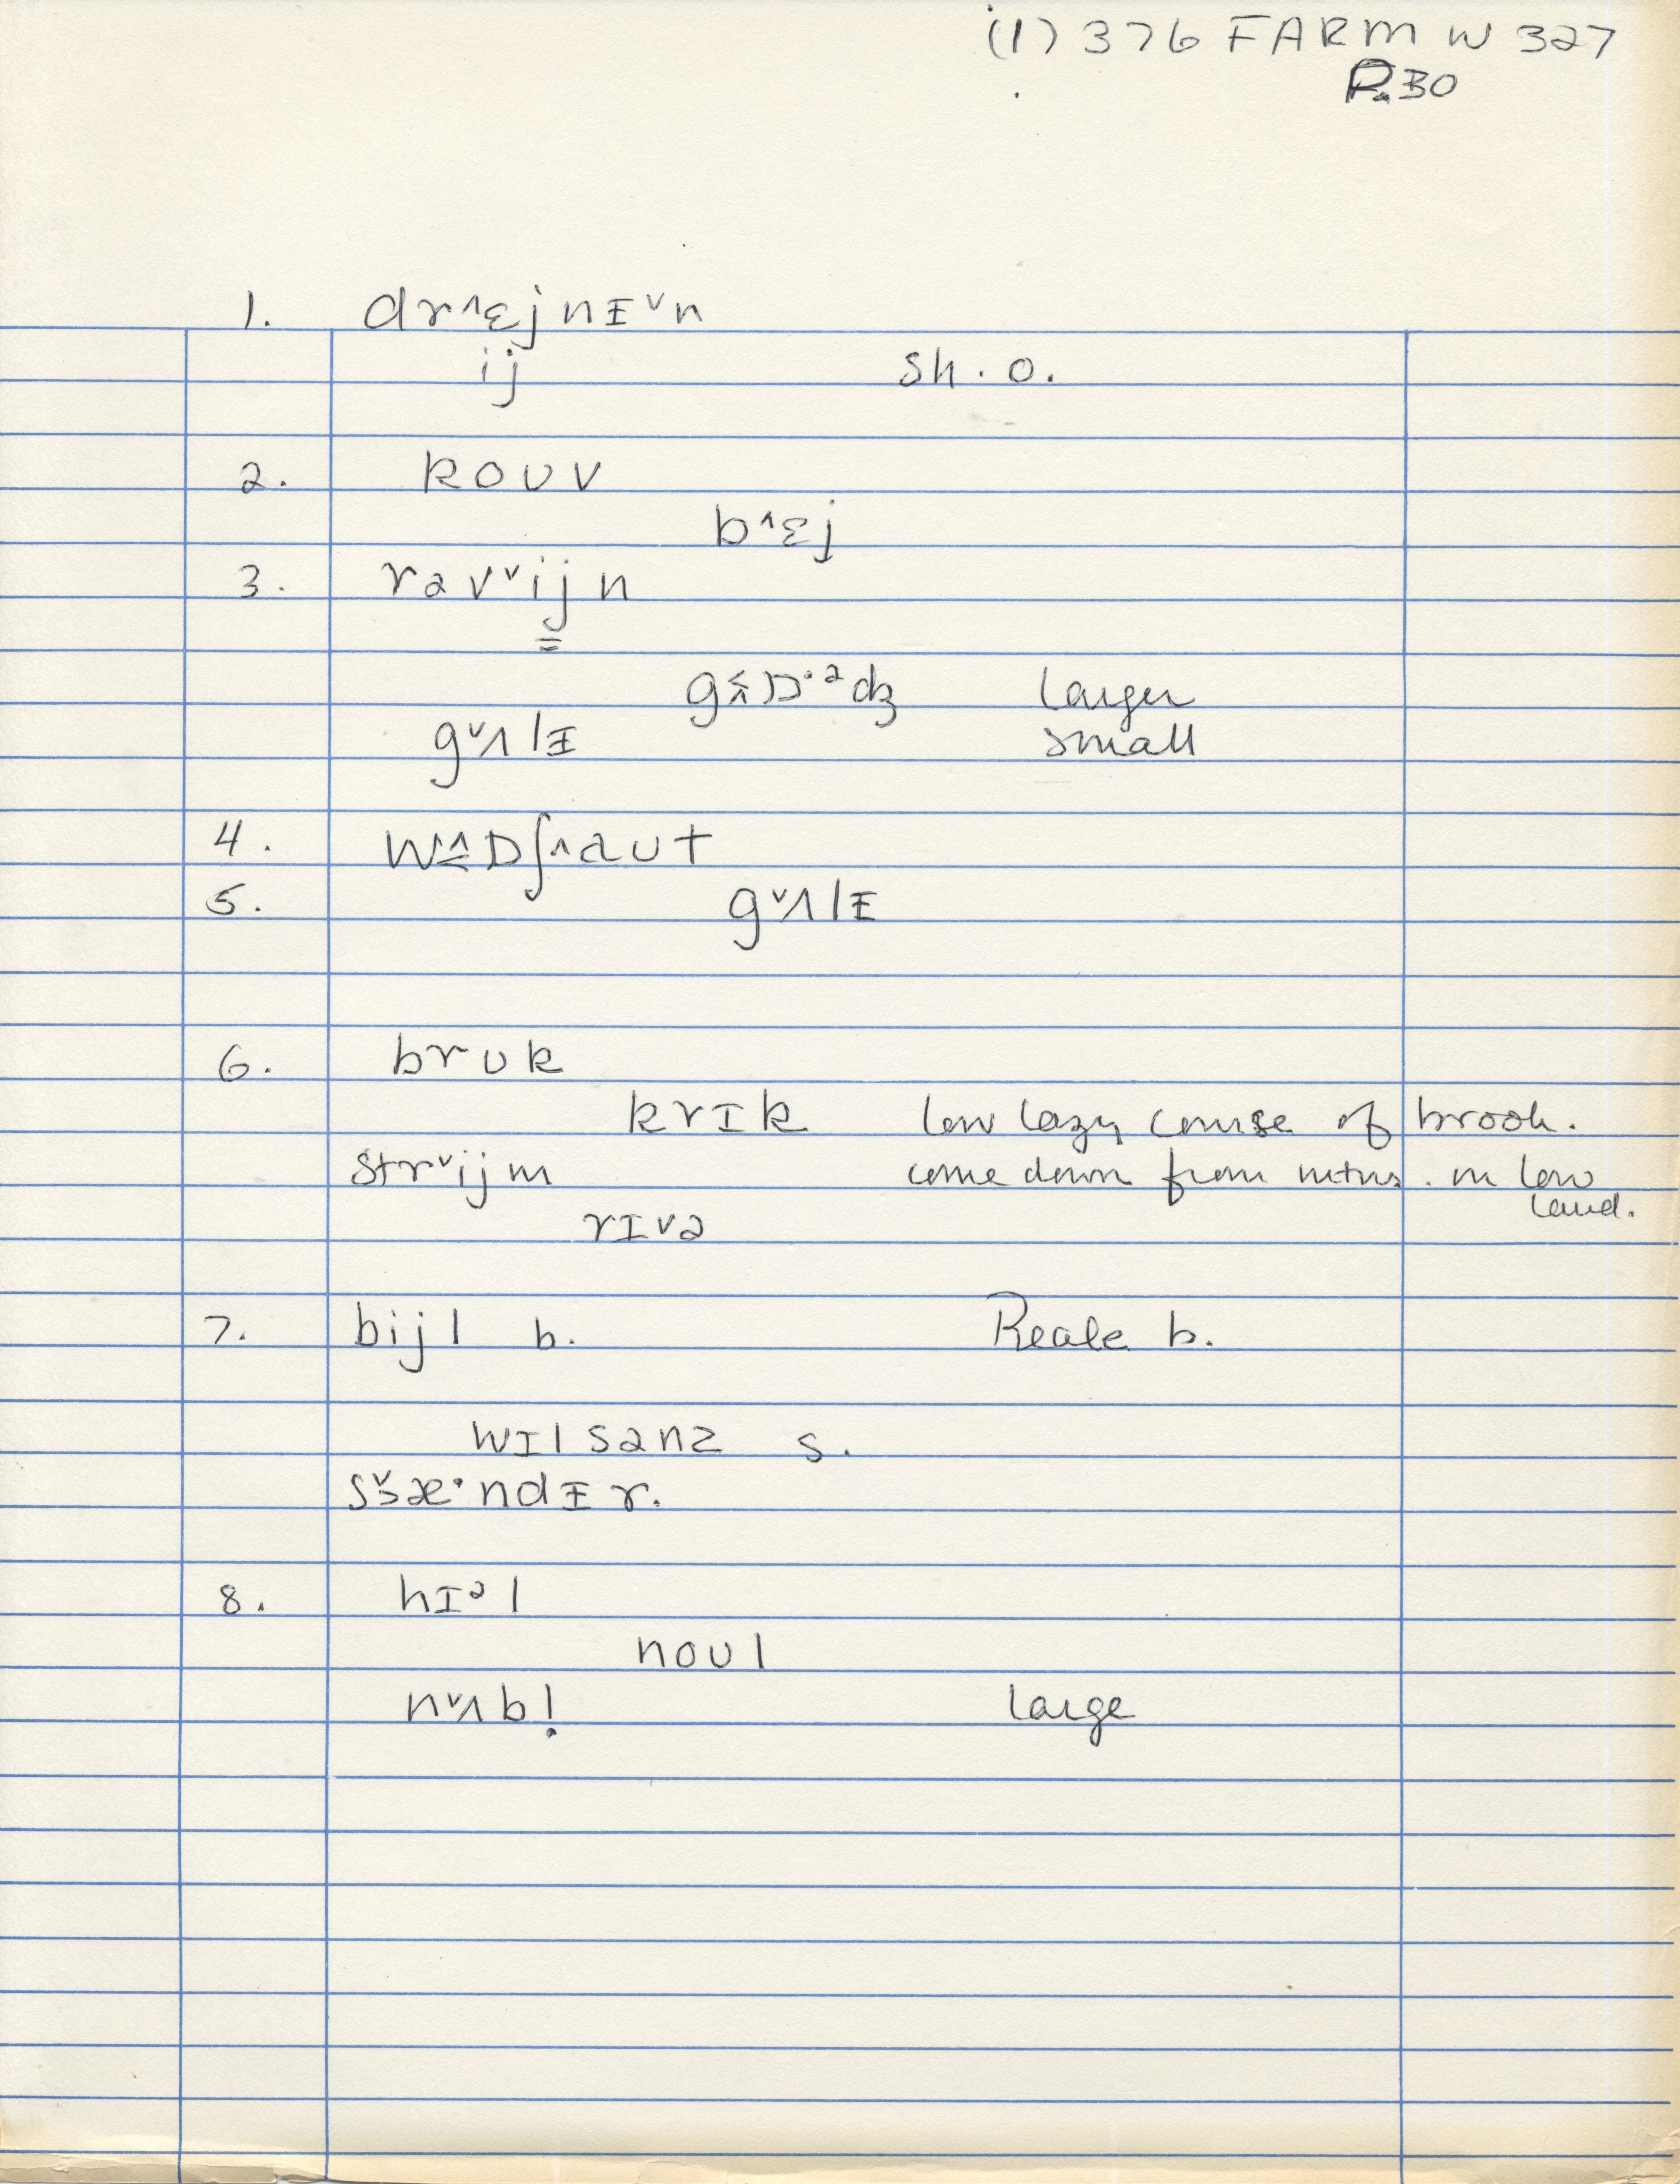 (1) 376 FARM W 327
P.30
1. dr^ɛjnɪ̵ˇn
ij sh. o.
2. koʊv
b^ɛj
3. rəvˇijn
gʌ̂ɒ·ᵊdʒ larger
gˇʌlɪ̵ small
4. w^ɒʃ^aʊt
5. gˇʌlɪ̵
6. brʊk
krɪk low lazy course of brook.
strˇijm come down from mtns. in low
land.
rɪvə
7. bijl b. Beale b.
wɪlsənz s.
sˇæ·ndɪ̵ r.
8. hɪᵊl
noʊl
nˇʌbl̩ large